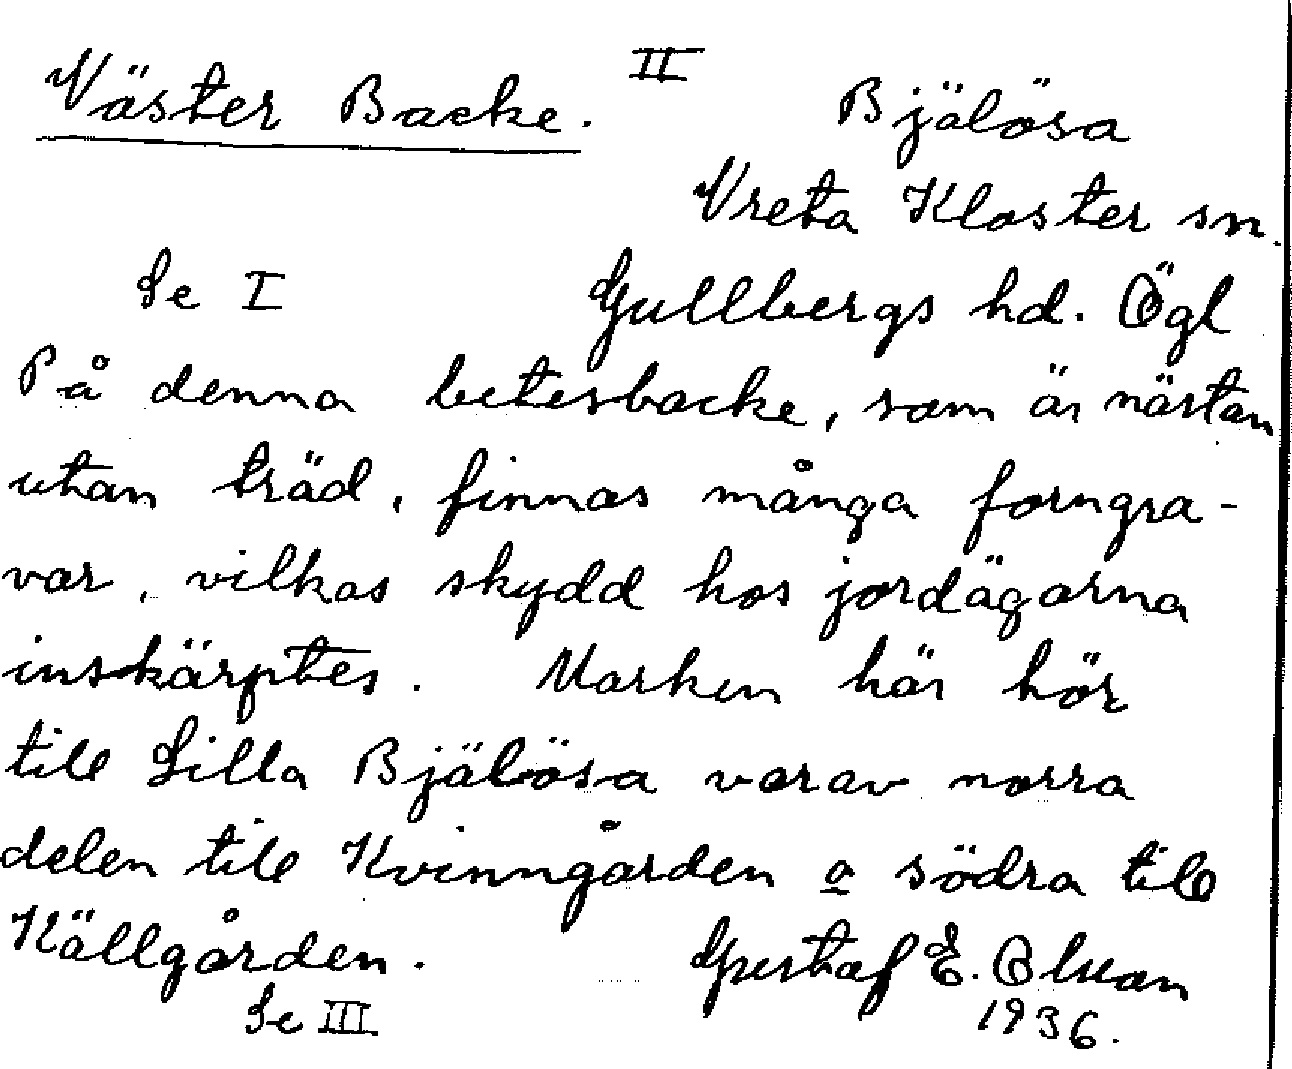 Väster Backe. II
Bjälösa
Vreta Kloster sn.
Se I Gullbergs hd. Ögl
På denna betesbacke, som är nästan
utan träd, finnas många forngra-
var, vilkas skydd hos jordägarna
inskärptes. Marken här hör
till Lilla Bjälösa varav norra
delen till Kvinngården o södra till
Källgården. Gustaf E. Olsson
Se III 1936.